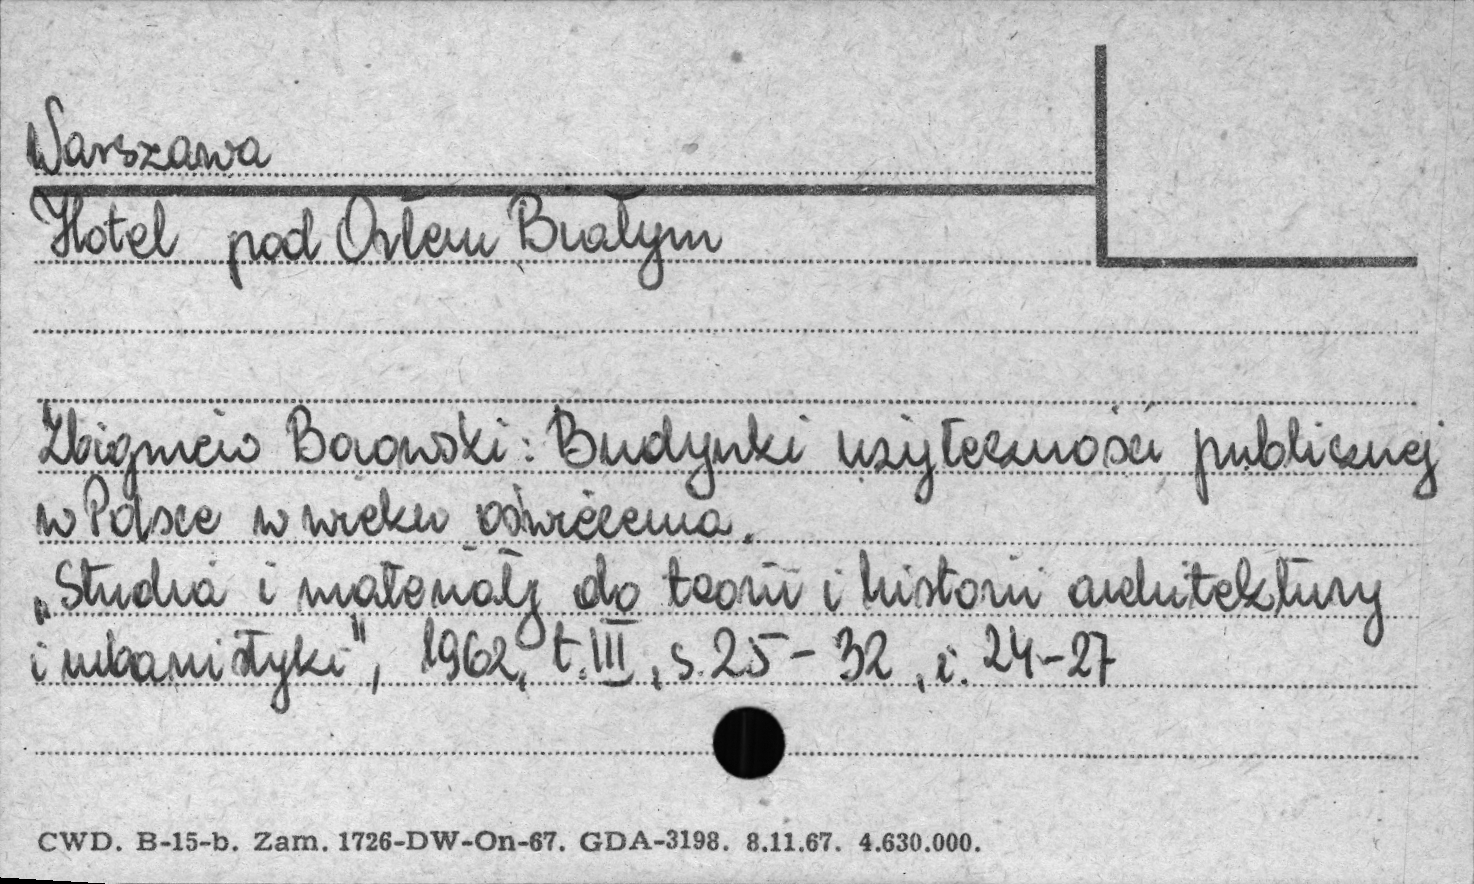 Warszawa
Hotel pod Orłem Białym
Zbigniew Borowski: Budynki użyteczności publicznej
w Polsce w wieku oświecenia.
„Studia i materiały do teorii i historii architektury
i urbanistyki", 1962, t. III, s. 25-32, i. 24-27
CWD. B-15-b. Zam. 1726-DW-On-67. GDA-3198. 8.11.67. 4.630.000.